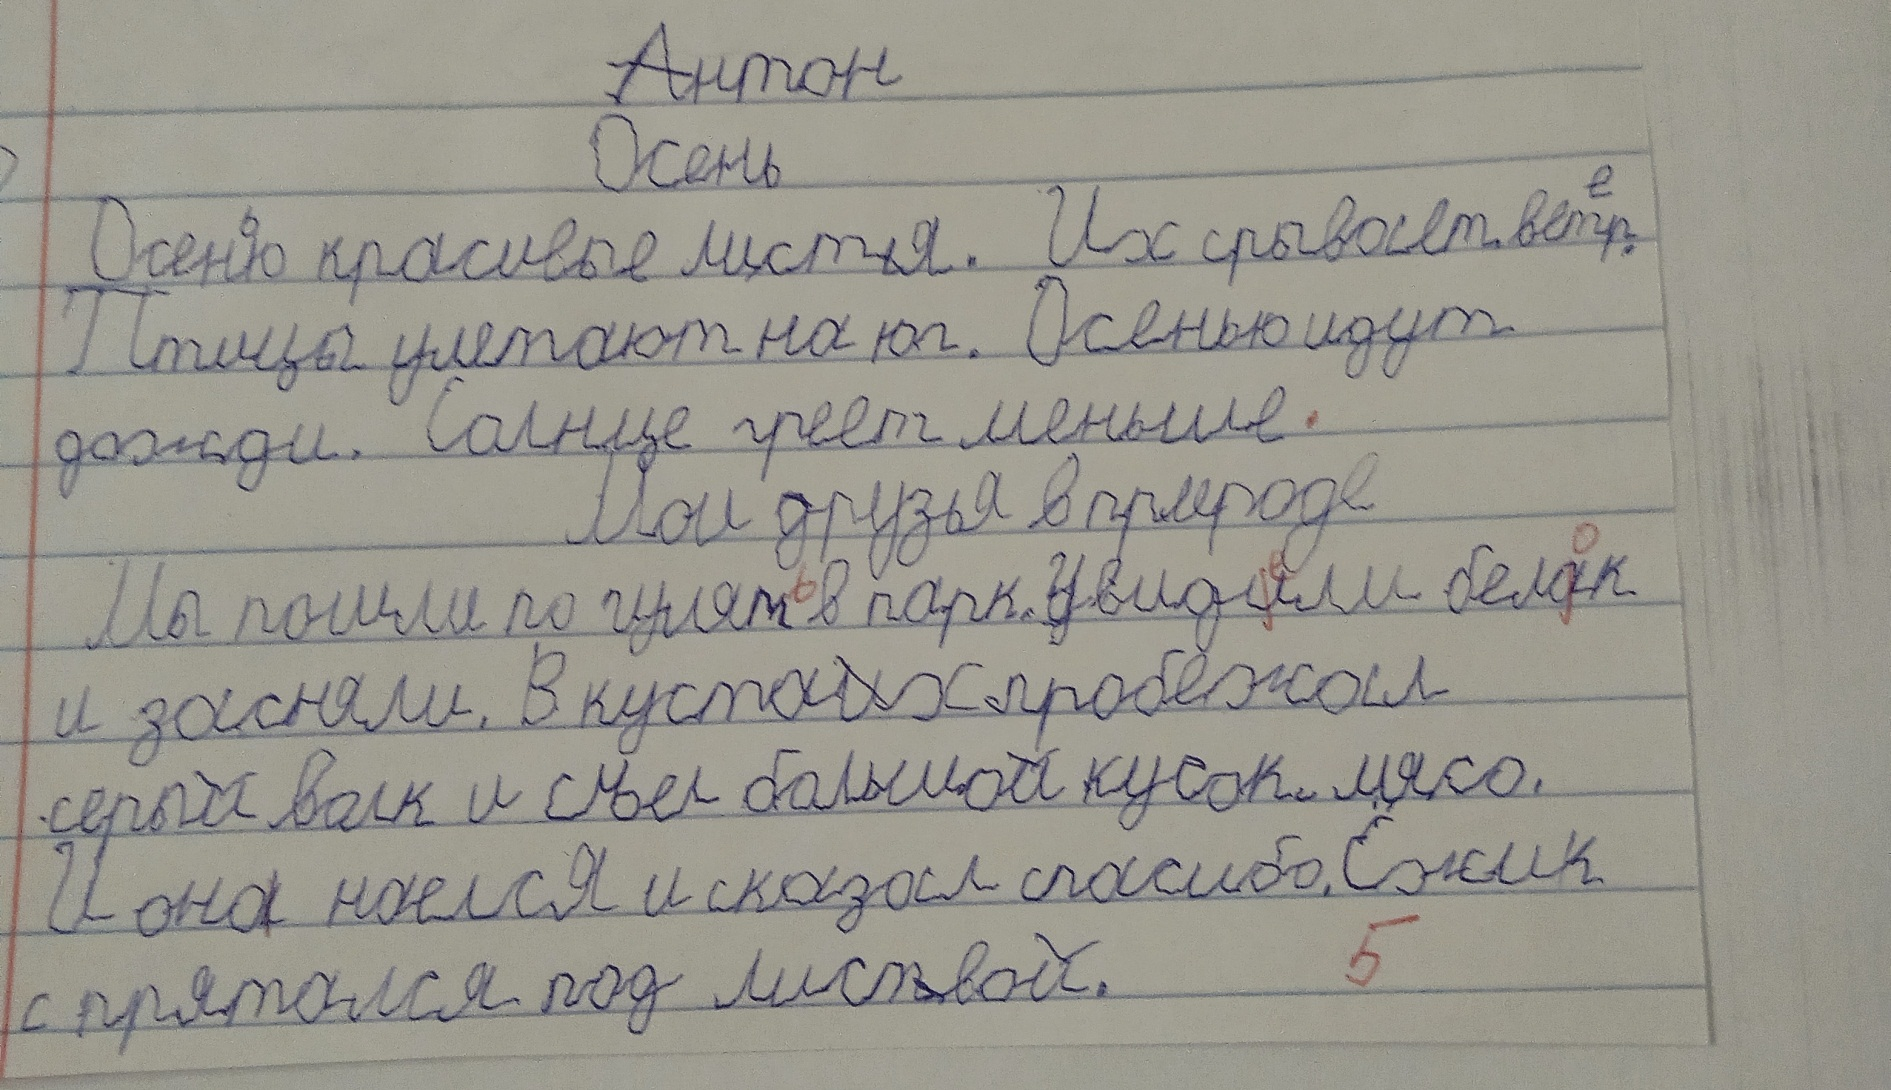 Антон
Осень
Осенью красивые листья. Их срывает ветер.
Птицы улетают на юг. Осенью идут
дожди. Солнце греет меньше.
Мои друзья в природе
Мы пошли по гулять в парк. Увидели белок
и засняли. В кустах пробежал
серый волк и съел большой кусок мясо.
И она наелся и сказал спасибо. Ёжик
с прятался под листвой.
5